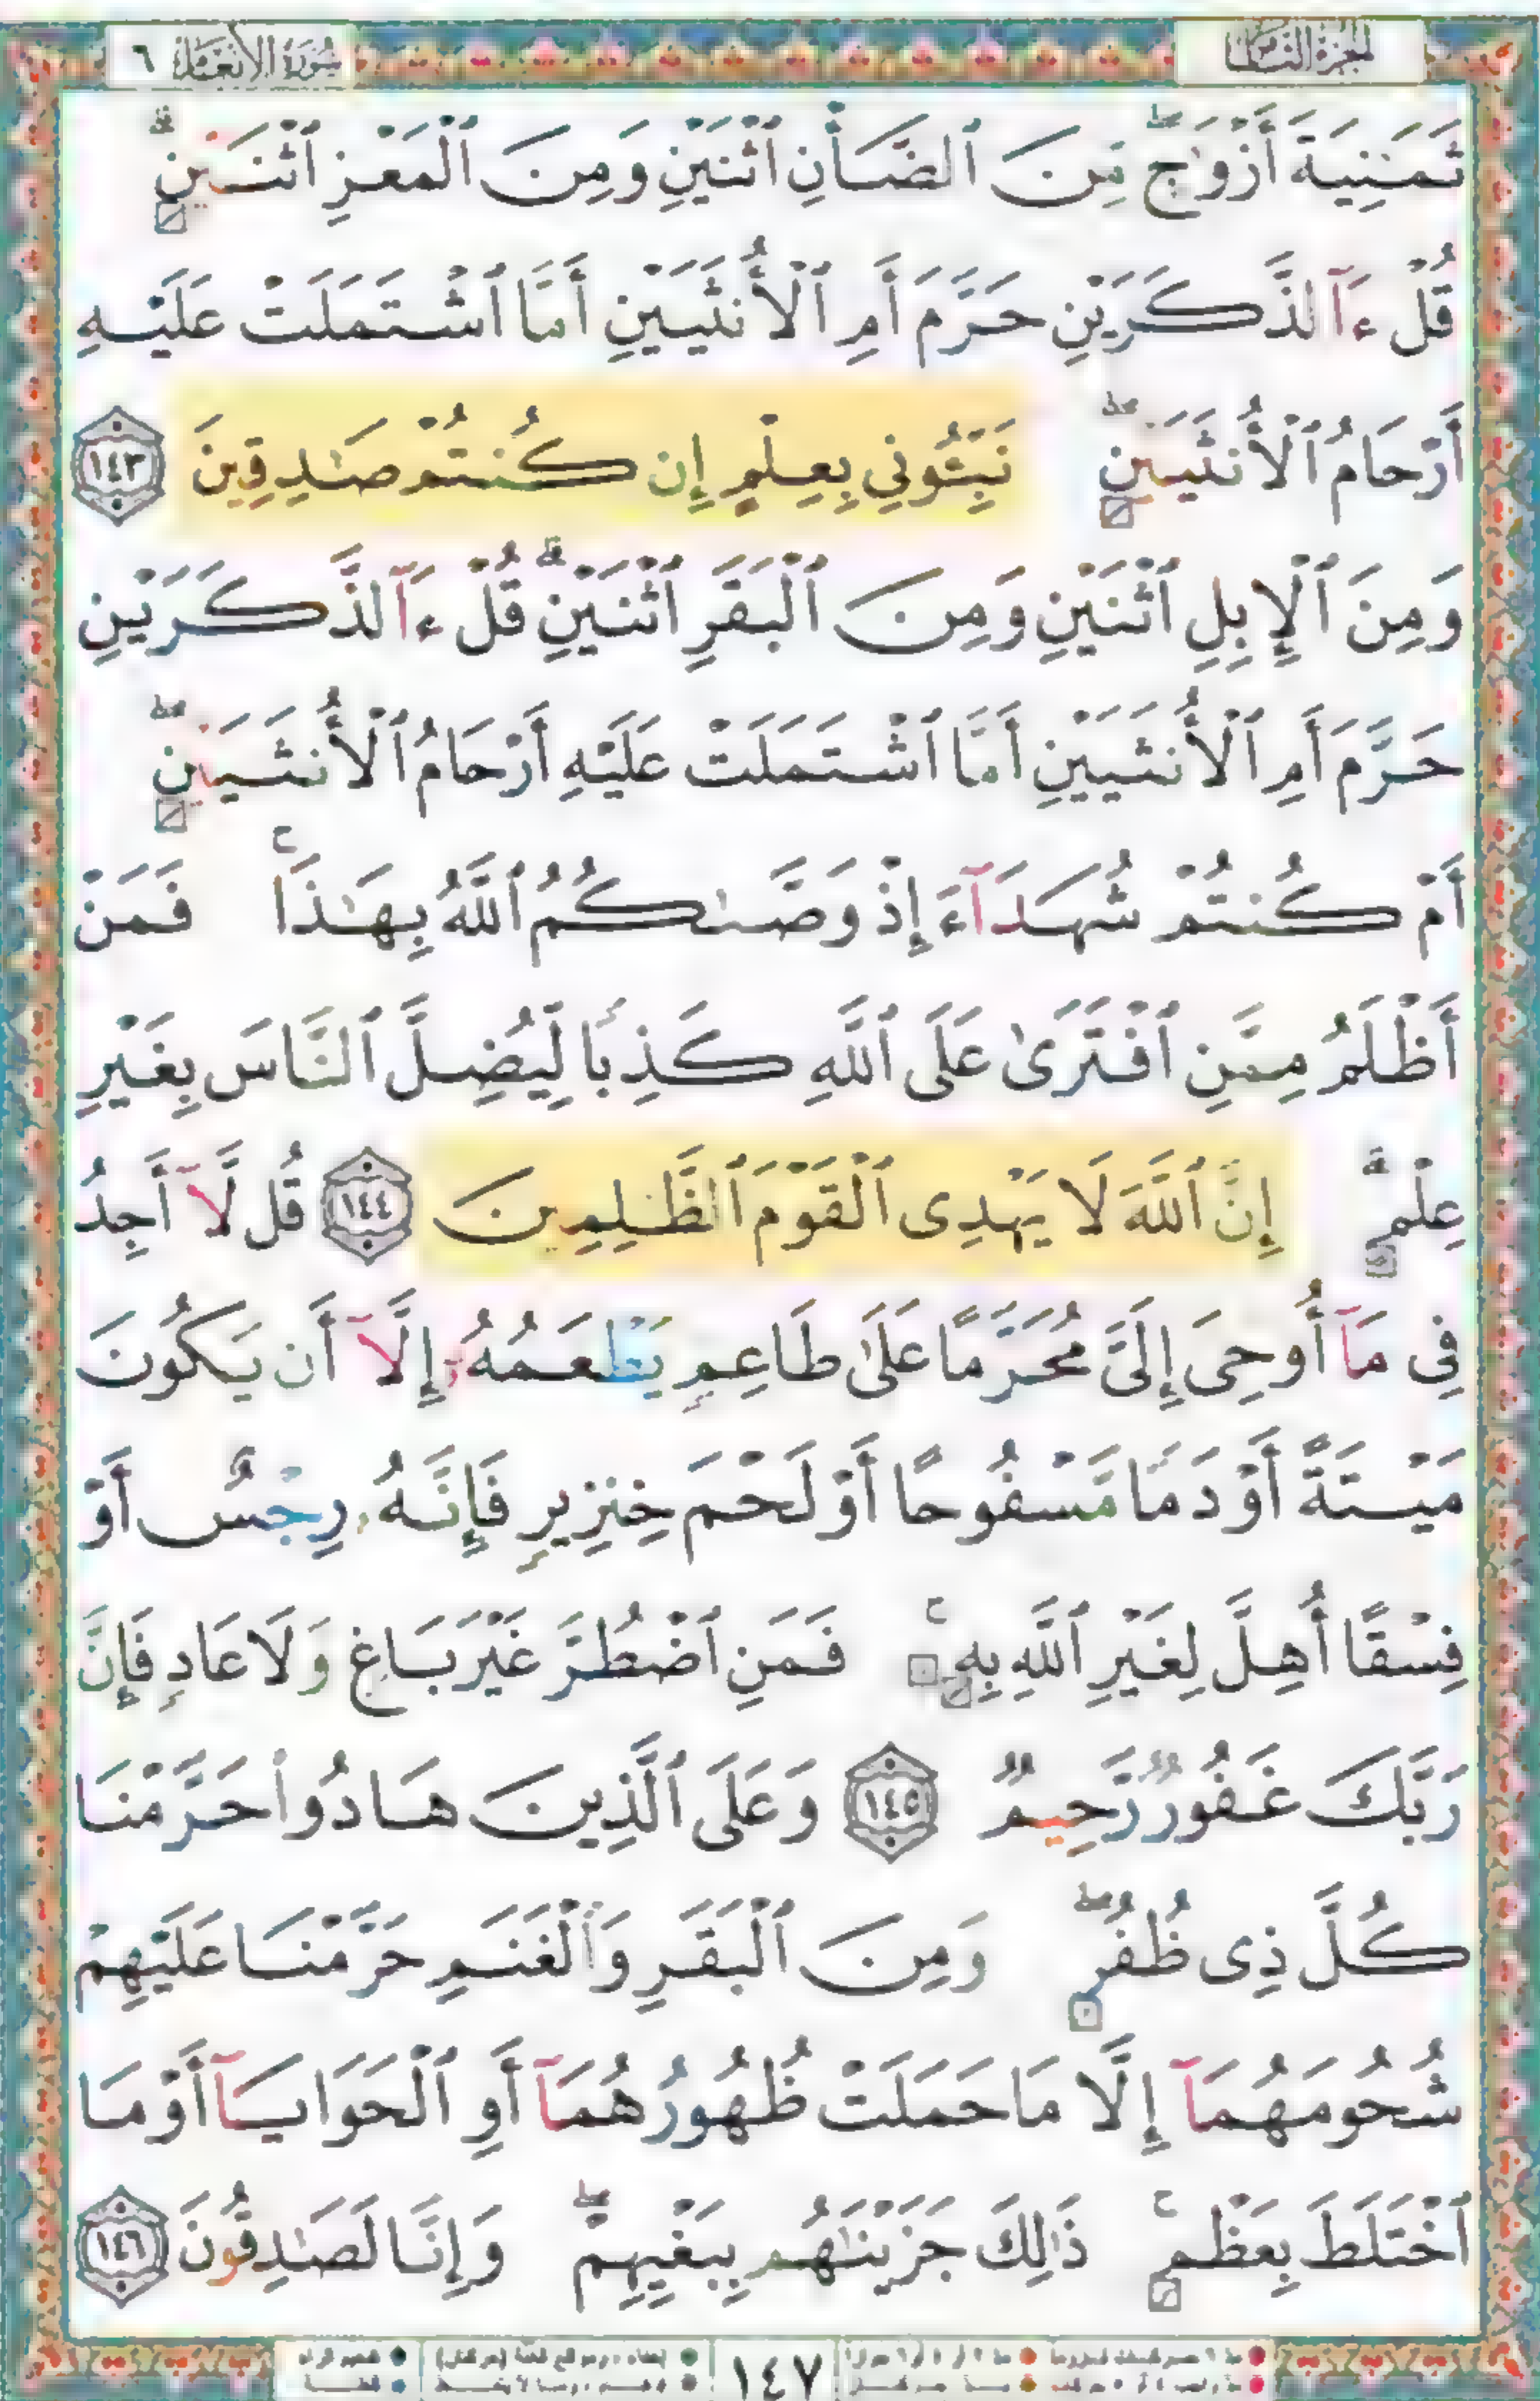 الجزء الثامن
سورة الأنعام ٦
ثَمَٰنِيَةَ أَزْوَٰجٍۖ مِّنَ ٱلضَّأْنِ ٱثْنَيْنِ وَمِنَ ٱلْمَعْزِ ٱثْنَيْنِۗ
قُلْ ءَآلذَّكَرَيْنِ حَرَّمَ أَمِ ٱلْأُنثَيَيْنِ أَمَّا ٱشْتَمَلَتْ عَلَيْهِ
أَرْحَامُ ٱلْأُنثَيَيْنِۖ نَبِّـُٔونِي بِعِلْمٍ إِن كُنتُمْ صَٰدِقِينَ ١٤٣
وَمِنَ ٱلْإِبِلِ ٱثْنَيْنِ وَمِنَ ٱلْبَقَرِ ٱثْنَيْنِۗ قُلْ ءَآلذَّكَرَيْنِ
حَرَّمَ أَمِ ٱلْأُنثَيَيْنِ أَمَّا ٱشْتَمَلَتْ عَلَيْهِ أَرْحَامُ ٱلْأُنثَيَيْنِۖ
أَمْ كُنتُمْ شُهَدَآءَ إِذْ وَصَّىٰكُمُ ٱللَّهُ بِهَٰذَاۚ فَمَنْ
أَظْلَمُ مِمَّنِ ٱفْتَرَىٰ عَلَى ٱللَّهِ كَذِبًا لِّيُضِلَّ ٱلنَّاسَ بِغَيْرِ
عِلْمٍۗ إِنَّ ٱللَّهَ لَا يَهْدِى ٱلْقَوْمَ ٱلظَّٰلِمِينَ ١٤٤ قُل لَّآ أَجِدُ
فِى مَآ أُوحِىَ إِلَىَّ مُحَرَّمًا عَلَىٰ طَاعِمٍ يَطْعَمُهُۥٓ إِلَّآ أَن يَكُونَ
مَيْتَةً أَوْ دَمًا مَّسْفُوحًا أَوْ لَحْمَ خِنزِيرٍ فَإِنَّهُۥ رِجْسٌ أَوْ
فِسْقًا أُهِلَّ لِغَيْرِ ٱللَّهِ بِهِۦۚ فَمَنِ ٱضْطُرَّ غَيْرَ بَاغٍ وَلَا عَادٍ فَإِنَّ
رَبَّكَ غَفُورٌ رَّحِيمٌ ١٤٥ وَعَلَى ٱلَّذِينَ هَادُوا۟ حَرَّمْنَا
كُلَّ ذِى ظُفُرٍۖ وَمِنَ ٱلْبَقَرِ وَٱلْغَنَمِ حَرَّمْنَا عَلَيْهِمْ
شُحُومَهُمَآ إِلَّا مَا حَمَلَتْ ظُهُورُهُمَآ أَوِ ٱلْحَوَايَآ أَوْ مَا
ٱخْتَلَطَ بِعَظْمٍۚ ذَٰلِكَ جَزَيْنَٰهُم بِبَغْيِهِمْۖ وَإِنَّا لَصَٰدِقُونَ ١٤٦
١٤٧